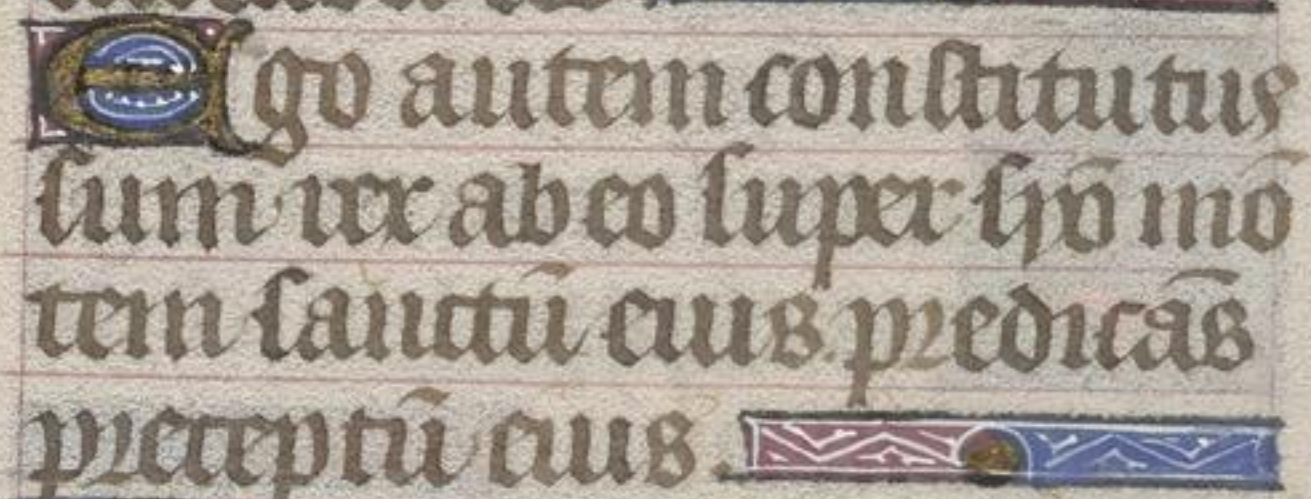 Ego autem constitutus
sum rex ab eo super syō mō
tem sanctū eius. predicās
preceptū eius.